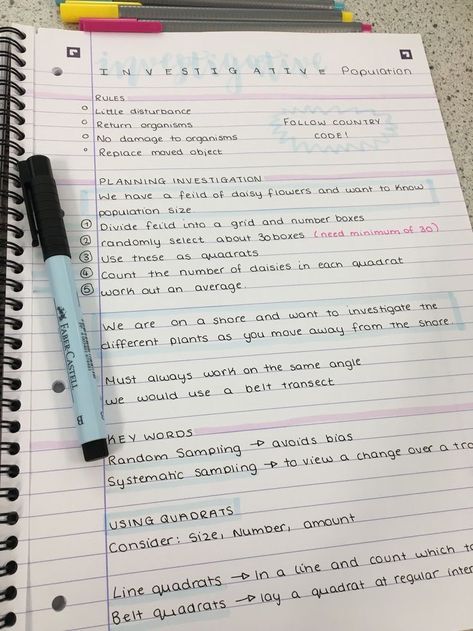 investigative
INVESTIGATIVE Population
RULES
Little disturbance
Return organisms
No damage to organisms
Replace moved object
FOLLOW COUNTRY
CODE!
PLANNING INVESTIGATION
We have a feild of daisy flowers and want to know
population size
① Divide feild into a grid and number boxes
② randomly select about 30 boxes (need minimum of 30)
③ Use these as quadrats
④ Count the number of daisies in each quadrat
⑤ work out an average.
We are on a shore and want to investigate the
different plants as you move away from the shore.
Must always work on the same angle
We would use a belt transect
KEY WORDS
Random Sampling → avoids bias
Systematic sampling → to view a change over a
USING QUADRATS
Consider: Size, Number, amount
Line quadrats → In a line and count which
Belt quadrats → lay a quadrat at regular
FABER-CASTELL